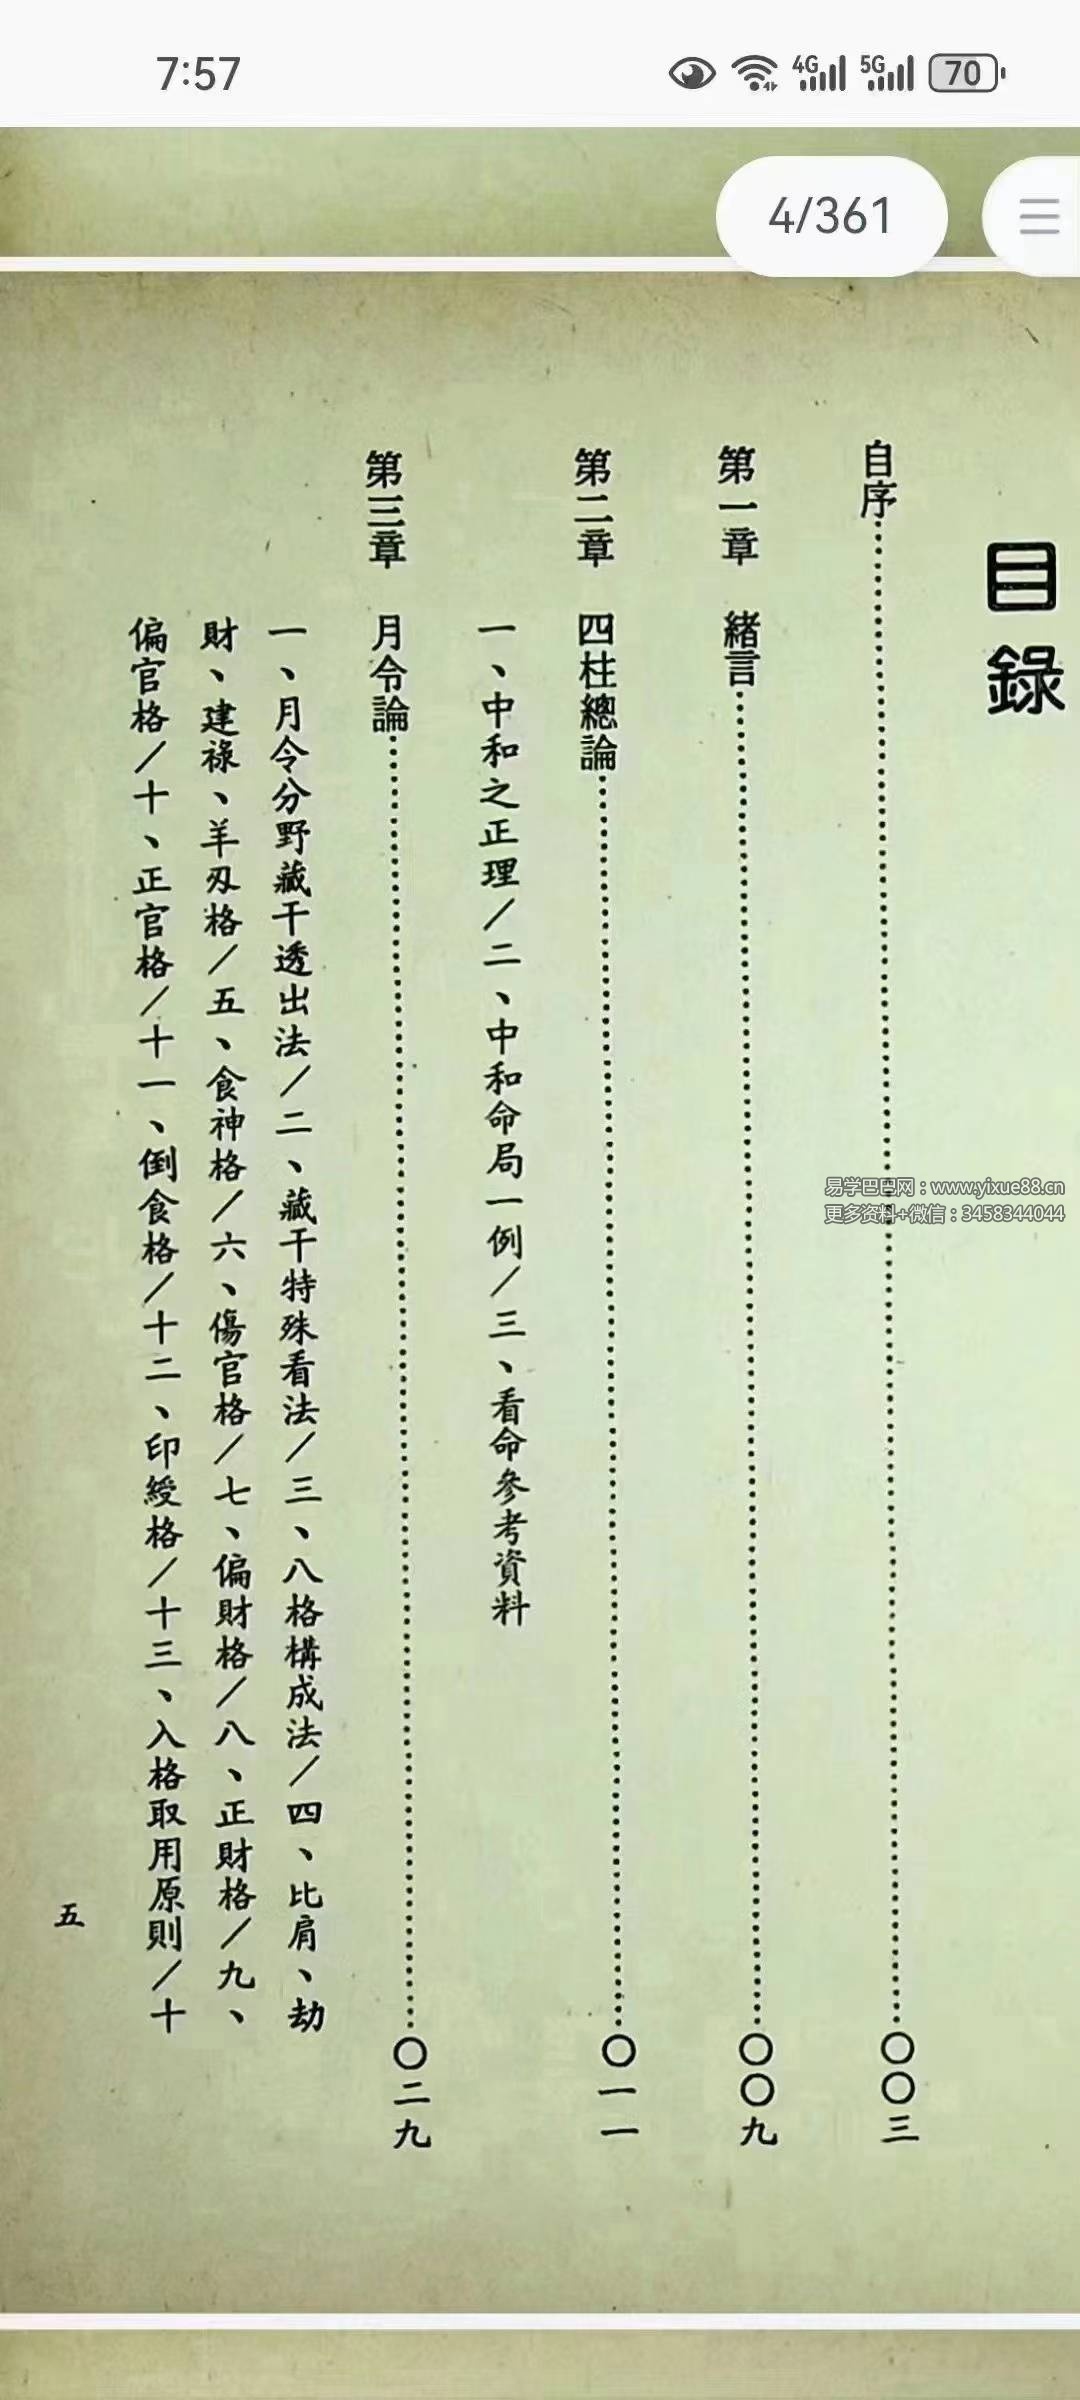 7:57
4G
5G
70
4/361
目錄
自序……〇〇三
第一章 緒言……〇〇九
第二章 四柱總論……〇一一
一、中和之正理/二、中和命局一例/三、看命參考資料
第三章 月令論……〇二九
一、月令分野藏干透出法/二、藏干特殊看法/三、八格構成法/四、比肩、劫
財、建祿、羊刃格/五、食神格/六、傷官格/七、偏財格/八、正財格/九、
偏官格/十、正官格/十一、倒食格/十二、印綬格/十三、入格取用原則/十
五
易学巴巴网：www.yixue88.cn
更多资料+微信：3458344044